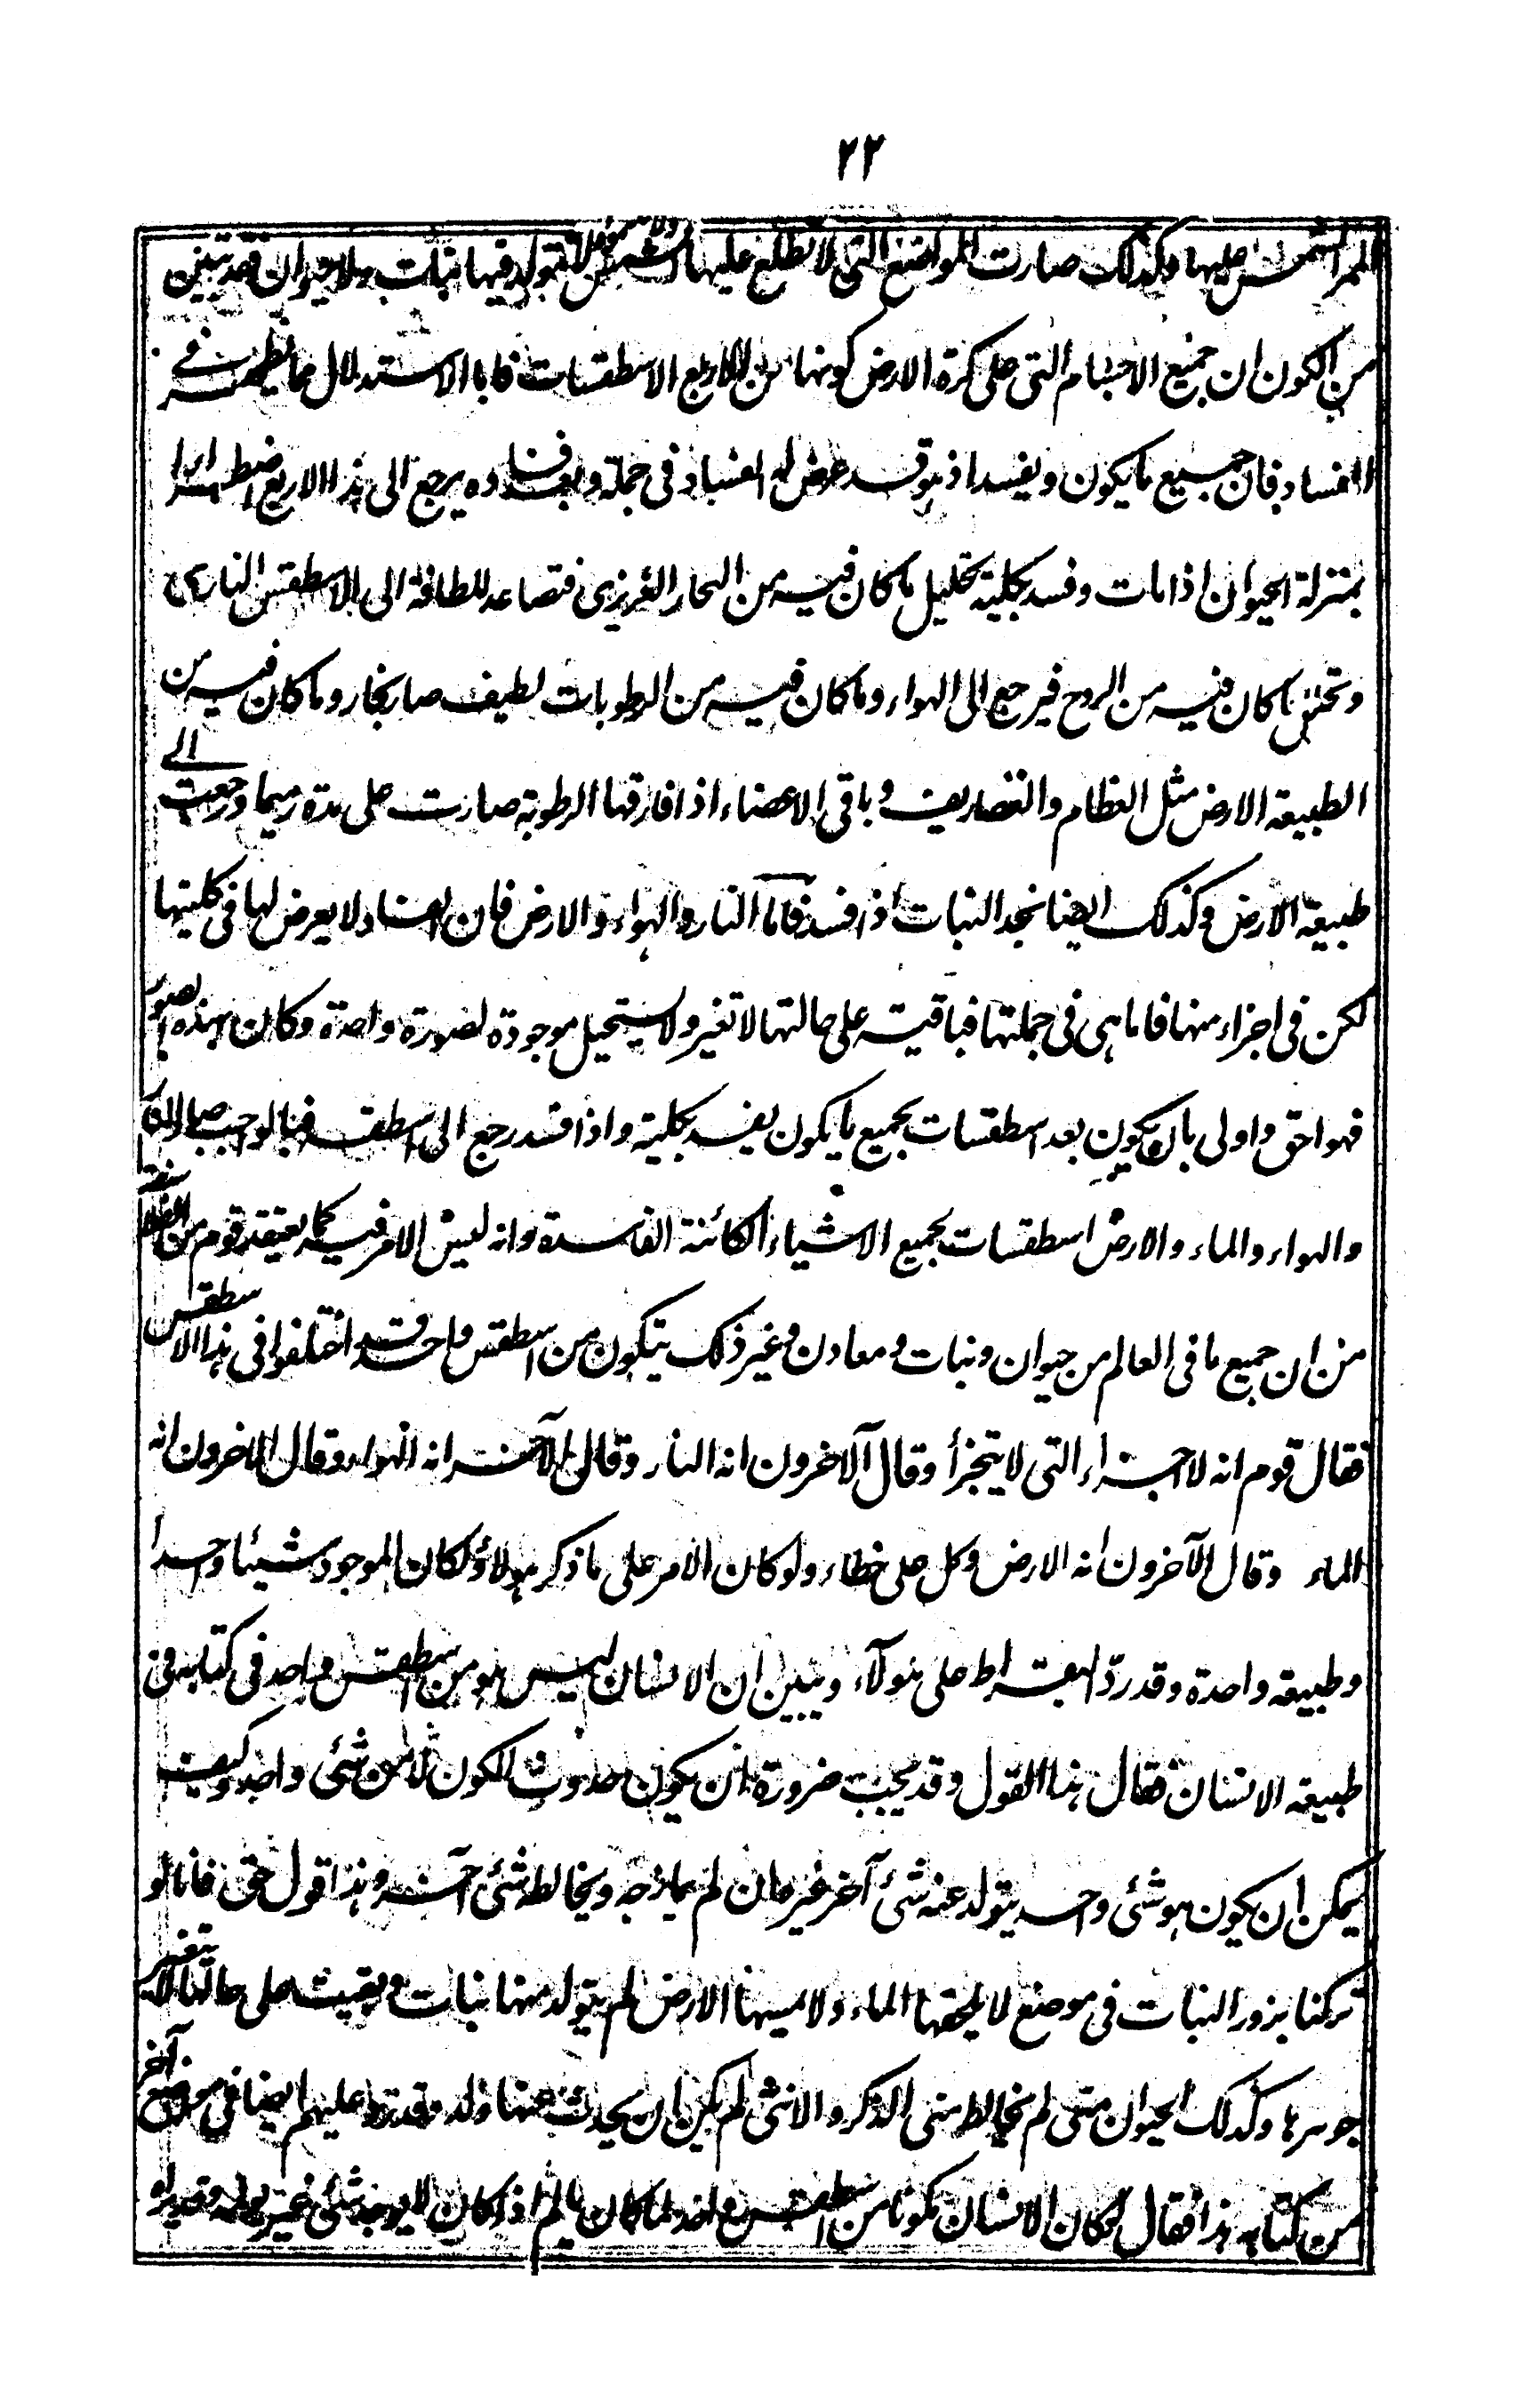 ٢٢
لممر الشمس عليها وكذلك صارت المواضع التى لا تطلع عليها الشمس لا يتولد فيها نبات ولا حيوان فقد تبين
من الكون ان جميع الاجسام التى على كرة الارض كونها من الاربع الاسطقسات فاما الاستدلال مما يظهر فى
الفساد فان جميع ما يكون ويفسد اذ هو قد عرض له الفساد فى جملة وبعد فساده يرجع الى هذا الاربع اضطرارا
بمنزلة الحيوان اذا مات وفسد بكلية تحليل ما كان فيه من البحار الغريزى فتصاعد للطافة الى الاسطقس النارى
وتختنق ما كان فيه من الروح فيرجع الى الهواء وما كان فيه من الرطوبات لطيف صار بخار وما كان فيه من
الطبيعة الارض مثل العظام والغضاريف وباقى الاعضاء اذا فارقها الرطوبة صارت على مدة رميما ورجعت الى
طبيعة الارض وكذلك ايضا نجد النبات اذا فسد فاما النار والهواء والارض فان الفساد لا يعرض لها فى كليتها
لكن فى اجزاء منها فاما هى فى جملتها فباقية على حالتها لا تغير ولا يستحيل موجودة لصورة واحدة وكان بهذه الصور
فهو احق واولى بان يكون بعد اسطقسات بجميع ما يكون يفسد بكلية واذا فسد رجع الى اسطقسه فبالواجب صار النار
والهواء والماء والارض اسطقسات بجميع الاشياء الكائنة الفاسدة وانه ليس الامر فيه كما يعتقد قوم من الفلاسفة
من ان جميع ما فى العالم من حيوان ونبات ومعادن وغير ذلك يتكون من اسطقس واحد وقد اختلفوا فى هذا الاسطقس
فقال قوم انه لاجزاء التى لا يتجزأ وقال آلاخرون انه النار وقال الآخر انه الهواء وقال الاخرون انه
الماء وقال الآخرون انه الارض وكل على خطاء ولو كان الامر على ما ذكر هؤلاء لكان الموجود شيئا واحدا
وطبيعة واحدة وقد ردّ ابقراط على هولآء وتبين ان الانسان ليس هو من اسطقس واحد فى كتابه فى
طبيعة الانسان فقال هذا القول وقد يجب ضرورة ان يكون حدوث الكون لا من شئى واحد وكيف
يمكن ان يكون هو شئى واحد يتولد عنه شئ آخر غيره ان لم يمازجه ويخالطه شئ آخر وهذا قول حق فانا لو
تركنا بزور النبات فى موضع لا يلحقها الماء ولا يمسها الارض لم يتولد منها نبات وبقيت على حالها لا يتغير
جوهرها وكذلك الحيوان متى لم يخالط منى الذكر والانثى لم يكن ان يحدث عنها ولد وقد رد عليهم ايضا فى موضع آخر
من كتابه هذا فقال لو كان الانسان مكونا من اسطقس واحد لما كان يالم اذ كان لا يوجد شئ غير يولمه وقد